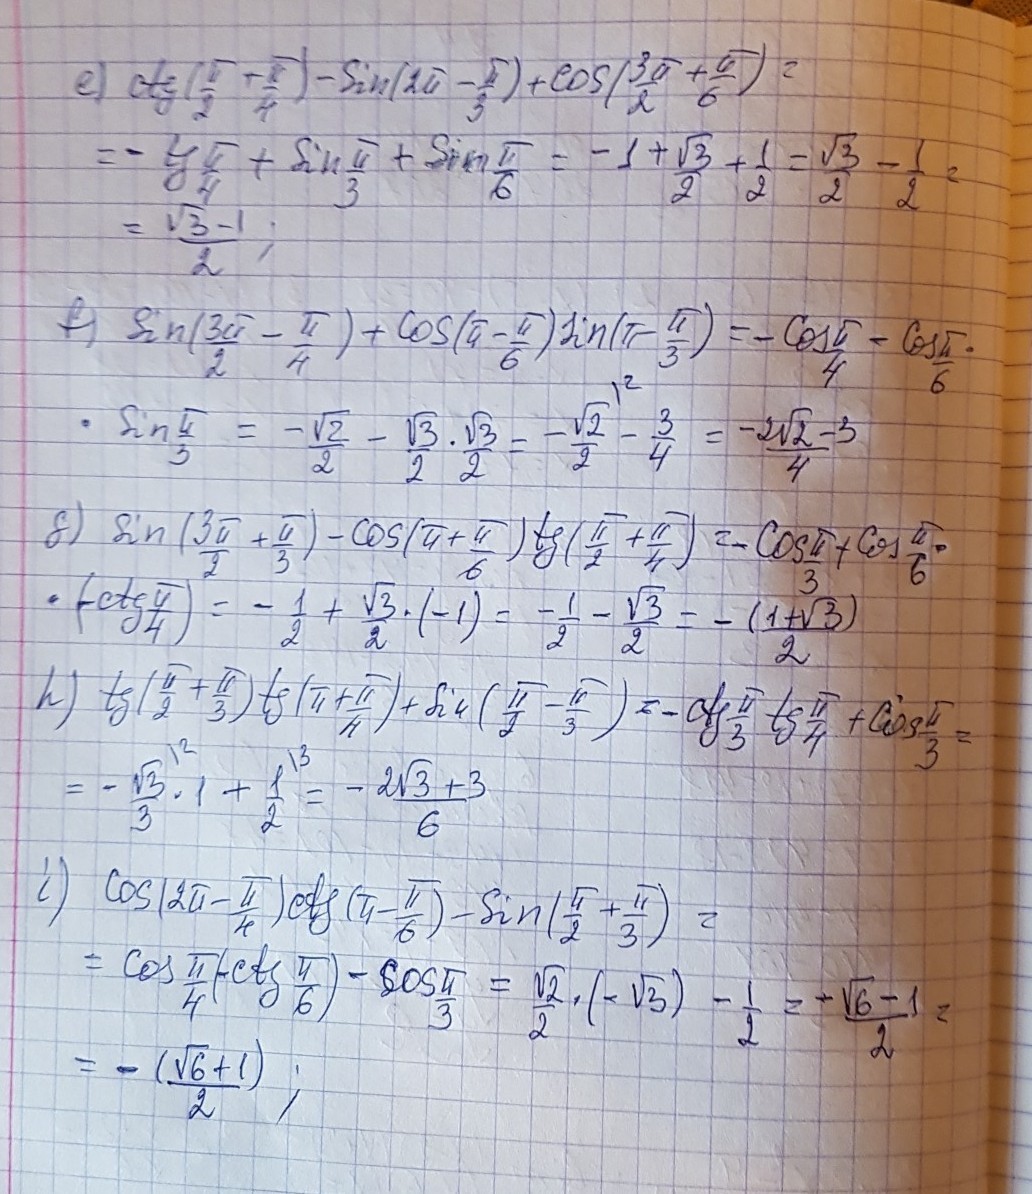 e) ctg(π/2 + π/4) - Sin(2π - π/3) + Cos(3π/2 + π/6) =
= - tg π/4 + Sin π/3 + Sin π/6 = - 1 + √3/2 + 1/2 = √3/2 - 1/2 =
= (√3 - 1)/2 ;
f) Sin(3π/2 - π/4) + Cos(π - π/6) Sin(π - π/3) = - Cos π/4 - Cos π/6 ·
· Sin π/3 = -√2/2 - √3/2 · √3/2 = -√2/2 \2 - 3/4 = (-2√2 - 3)/4
g) Sin(3π/2 + π/3) - Cos(π + π/6) tg(π/2 + π/4) = - Cos π/3 + Cos π/6 ·
· (-ctg π/4) = - 1/2 + √3/2 · (-1) = - 1/2 - √3/2 = - (1+√3)/2
h) tg(π/2 + π/3) tg(π + π/4) + Sin(π/2 - π/3) = - ctg π/3 tg π/4 + Cos π/3 =
= - √3/3 \2 · 1 + 1/2 \3 = - 2√3 + 3/6
i) Cos(2π - π/4) ctg(π - π/6) - Sin(π/2 + π/3) =
= Cos π/4 (-ctg π/6) - Cos π/3 = √2/2 · (-√3) - 1/2 = (-√6 - 1)/2 =
= - (√6 + 1)/2 ;